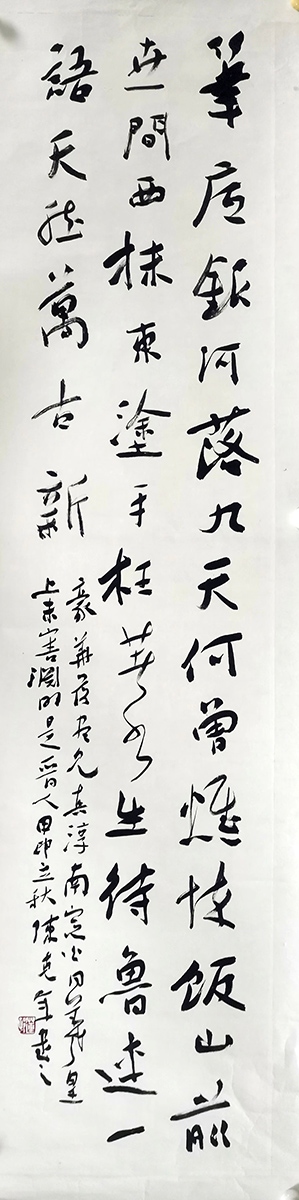 筆底銀河落九天何曾憔悴飯山前
世間西抹東塗手枉著書生待魯連一
語天然萬古新
豪華落盡見真淳南窗白日羲皇
上未害淵明是晉人甲申立秋陳書之